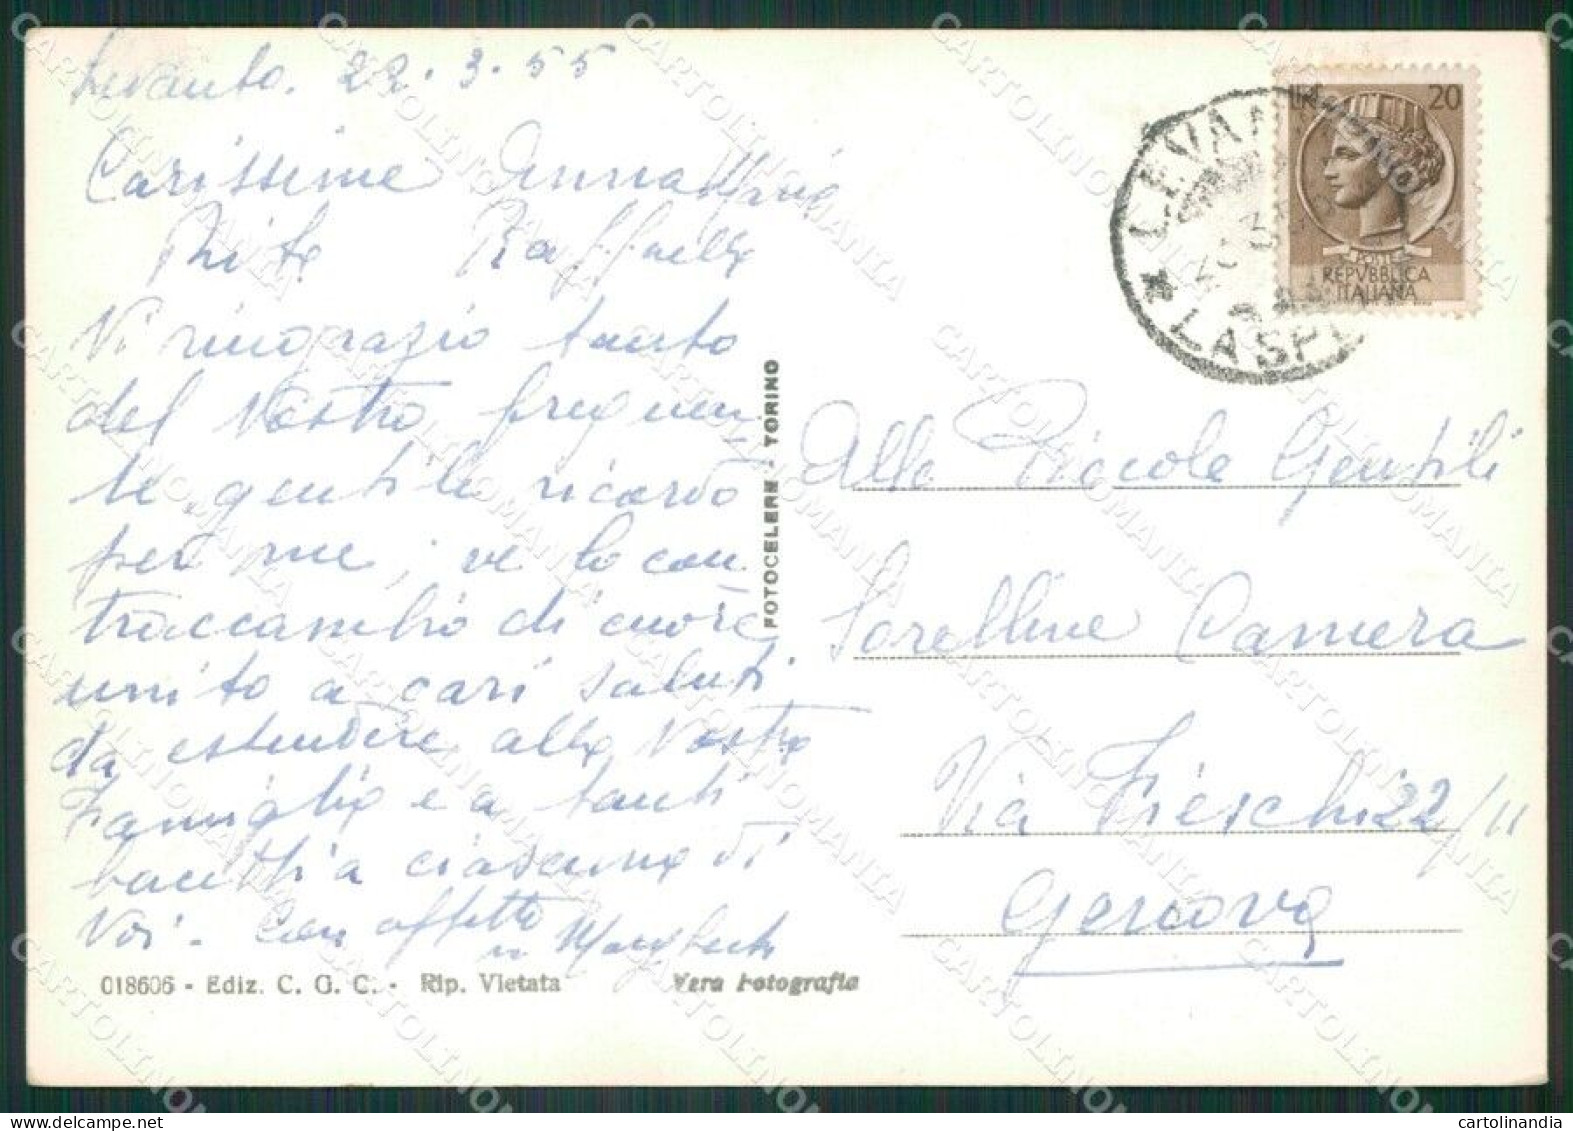 Levanto. 22.3.55
Carissime Annamaria
Rita Raffaella
Vi ringrazio tanto
del Vostro frequen-
te, gentile ricordo
per me; ve lo con
traccambio di cuore
unito a cari saluti
da estendere alla Vostra
Famiglia e a tanti
bacetti a ciascuna di
Voi. Con affetto
018606 - Ediz. C. G. C. - Rip. Vietata
Vera Fotografia
FOTOCELERE - TORINO
20
POSTE
REPVBBLICA
ITALIANA
* LEVAN
LA SPE
Alle Piccole Gentili
Sorelline Camera
Via Fieschi 22/11
Genova
CARTOLINOMANIA
cartolinandia